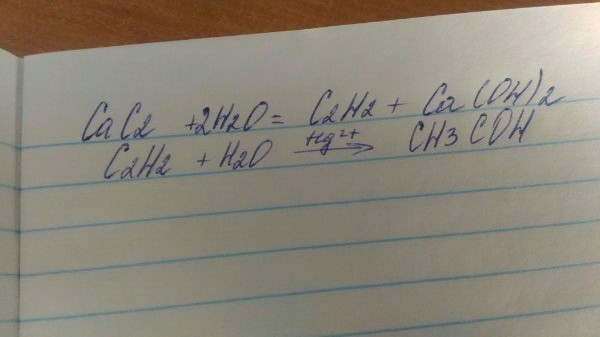 CaC2 +2H2O = C2H2 + Ca(OH)2
C2H2 + H2O Hg2+→ CH3COH